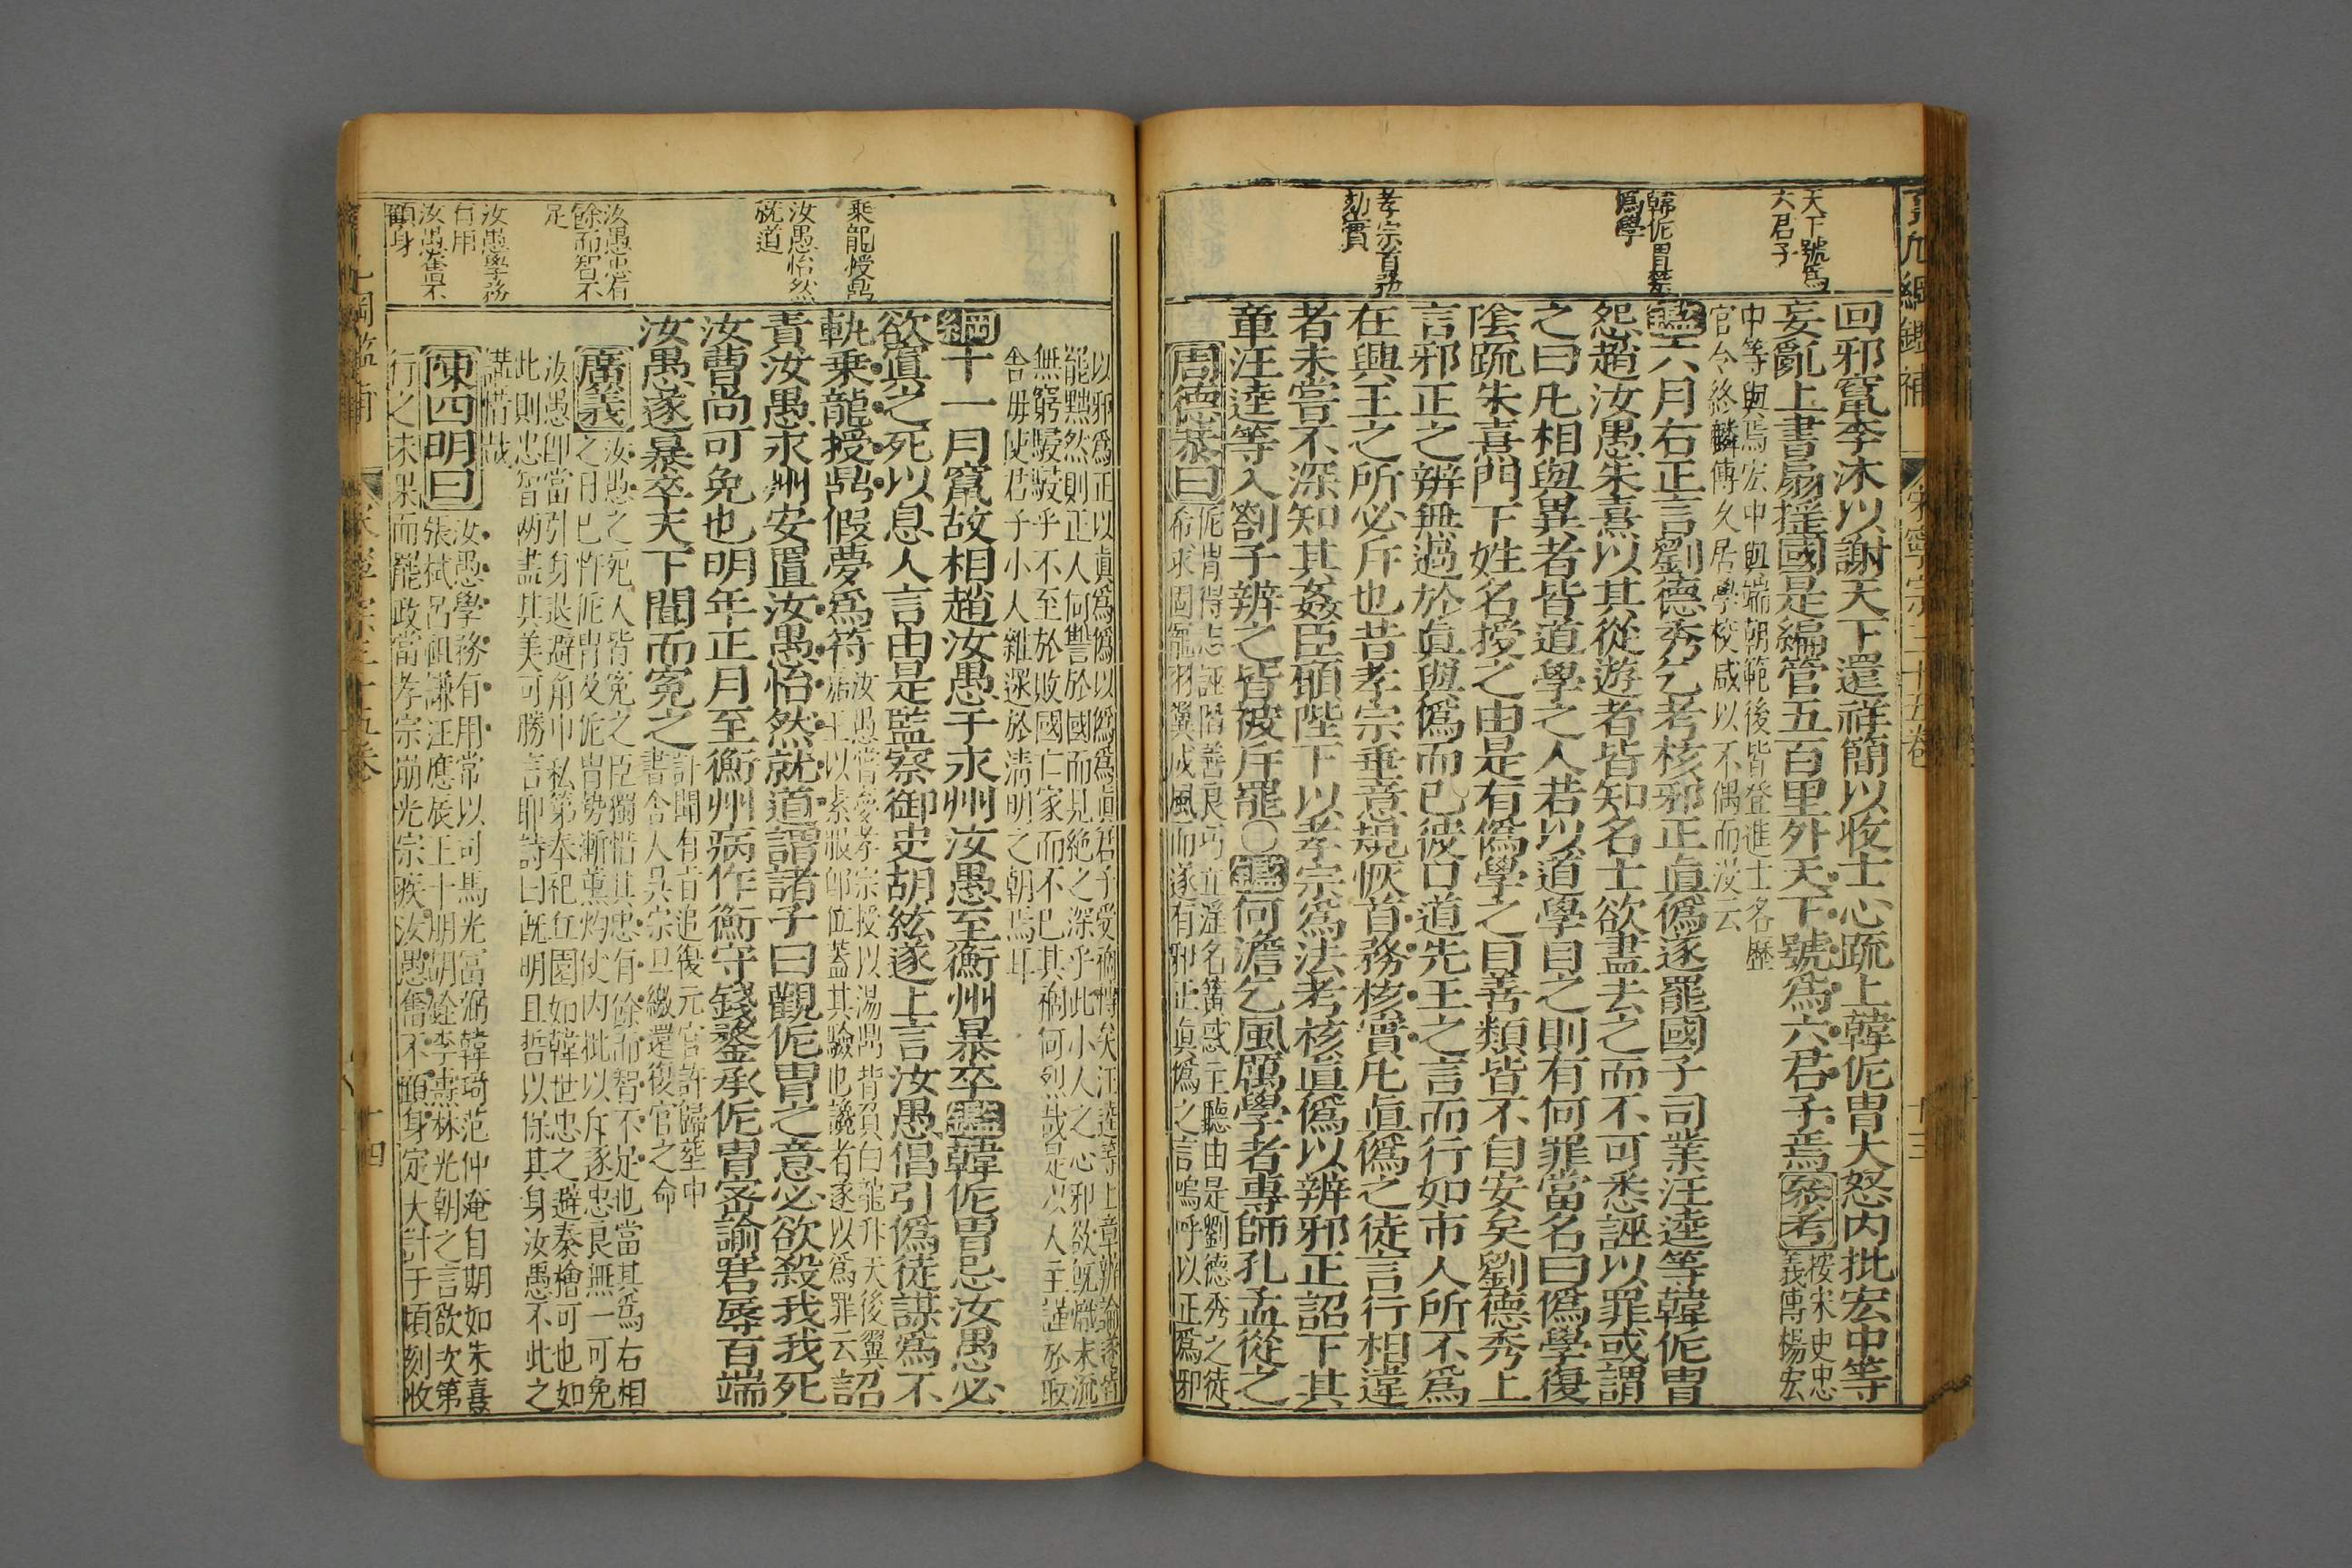 天下號爲
六君子
韓侂胄築
爲學
孝宗首務
劾實
回邪竄李沐以謝天下還祥簡以收士心疏上韓侂胄大怒内批宏中等
妄亂上書扇揺國是編管五百里外天下號爲六君子焉叅考按宋史忠
義傳楊宏
中等與焉宏中與端朝範後皆登進士各歷
官令終麟傳久居學校咸以不偶而沒云
鑑六月右正言劉德秀乞考核邪正眞僞遂罷國子司業汪逵等韓侂胄
怨趙汝愚朱熹以其從遊者皆知名士欲盡去之而不可悉誣以罪或謂
之曰凡相與異者皆道學之人若以道學目之則有何罪當名曰僞學復
陰疏朱熹門下姓名授之由是有僞學之目善類皆不自安矣劉德秀上
言邪正之辨無過於眞與僞而已彼口道先王之言而行如市人所不爲
在興王之所必斥也昔孝宗垂意規恢首務核實凡眞僞之徒言行相違
者未嘗不深知其姦臣願陛下以孝宗爲法考核眞僞以辨邪正詔下其
章汪逵等入劄子辨之皆被斥罷〇鑑何澹乞風厲學者專師孔孟從之
周德恭曰侂胄得志誣陷善良巧立淫名簧惑主聽由是劉德秀之徒
希求固寵羽翼成風而遂有邪正眞僞之言嗚呼以正爲邪
宋寧宗三十五卷
十三
乘龍授鼎
汝愚怡然
就道
汝愚忠有
餘而智不
足
汝愚學務
有用
汝愚奮不
顧身
以邪爲正以眞爲僞以僞爲眞君子受禍慘矣汪逵等上章辨論遂皆
罷黜然則正人何讐於國而見絶之深乎此小人之心邪欲旣熾末流
無窮駸駸乎不至於敗國亡家而不已其禍何烈哉是以人主謹於取
舍毋使君子小人雜遝於清明之朝焉耳
綱十一月竄故相趙汝愚于永州汝愚至衡州暴卒鑑韓侂胄忌汝愚必
欲寘之死以息人言由是監察御史胡紘遂上言汝愚倡引僞徒謀爲不
軌乘龍授鼎假夢爲符汝愚嘗夢孝宗授以湯鼎背負白龍升天後翼
嘉王以素服卽位蓋其驗也讒者遂以爲罪云詔
責汝愚永州安置汝愚怡然就道謂諸子曰觀侂胄之意必欲殺我我死
汝曹尚可免也明年正月至衡州病作衡守錢鍪承侂胄密諭窘辱百端
汝愚遂暴卒天下聞而冤之計聞有旨追復元官許歸葬中
書舍人吳宗旦繳還復官之命
廣義汝愚之死人皆冤之臣獨惜其忠有餘而智不足也當其爲右相
之日已忤侂胄及侂胄勢漸薰灼使内批以斥逐忠良無一可免
汝愚卽當引身退避角巾私第奉祀丘園如韓世忠之避秦檜可也如
此則忠智兩盡其美可勝言耶詩曰旣明且哲以保其身汝愚不此之
講惜哉
陳四明曰汝愚學務有用常以司馬光富弼韓琦范仲淹自期如朱熹
張栻呂祖謙汪應辰王十朋胡銓李燾林光朝之言欲次第
行之未果而罷政當孝宗崩光宗疾汝愚奮不顧身定大計于頃刻收
十四